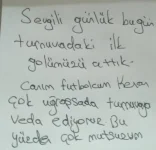 Sevgili günlük bugün
turnuvadaki ilk
golümüzü attık.
Canım futbolcum Kerem
çok uğraşsada turnuvaya
veda ediyoruz Bu
yüzden çok mutsuzum